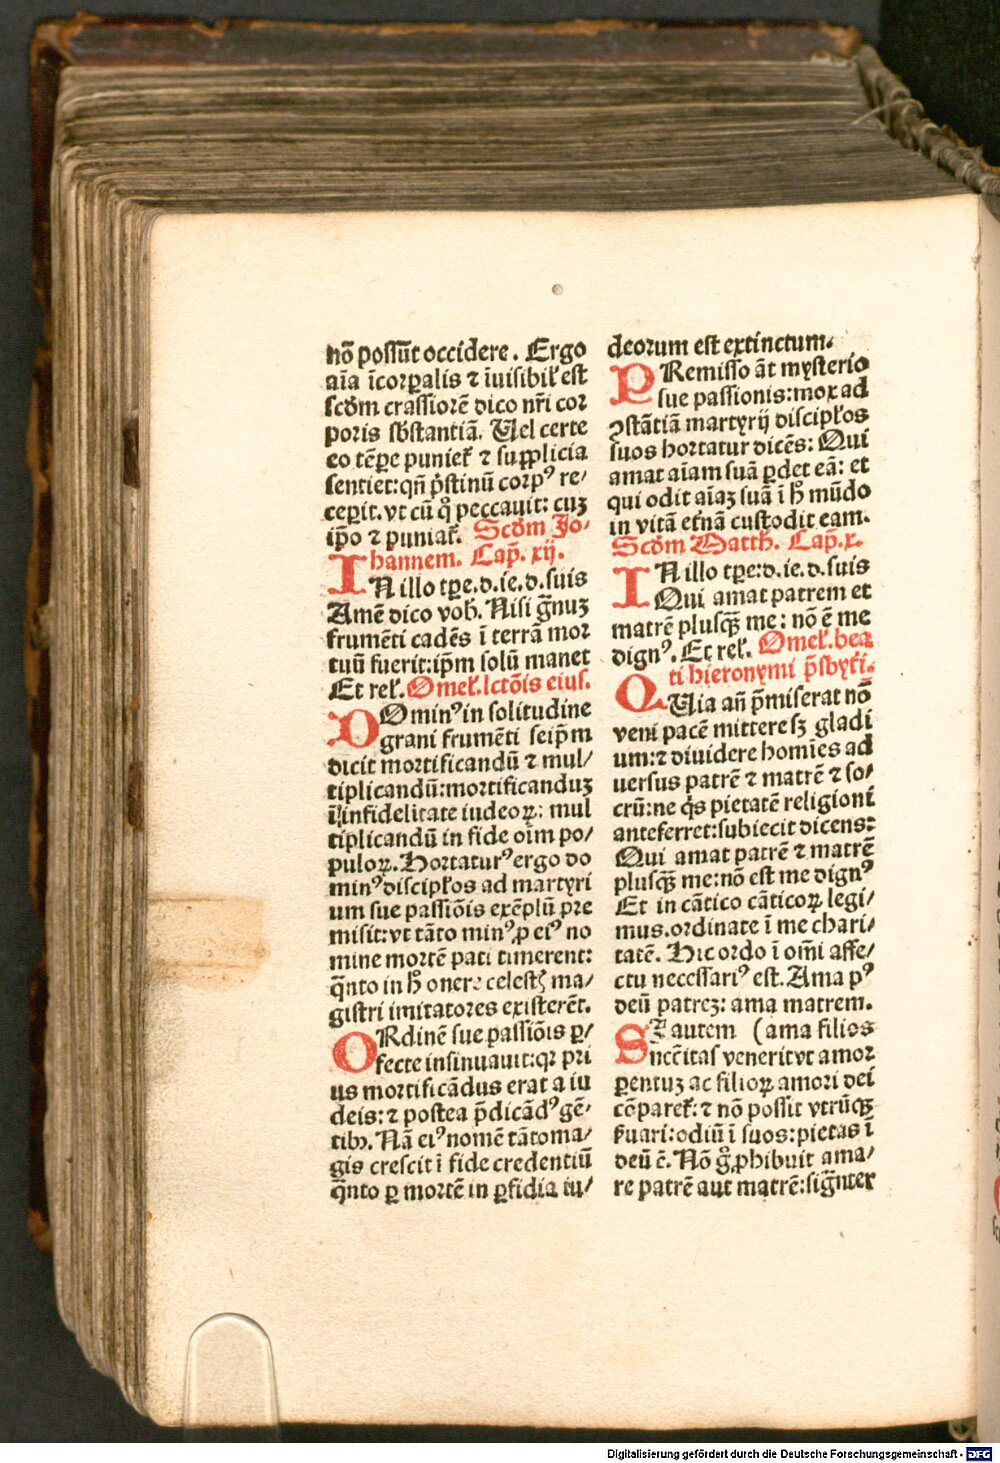 nō possūt occidere. Ergo
aīa īcorꝑalis ⁊ īuisibil̄ est
scd̄m crassiorē dico nr̄i cor
poris sb̄stantiā. Uel certe
eo tēꝑe puniet̄ ⁊ supplicia
sentiet: qn̄ p̄stinū corpꝰ re⸗
ceperit. vt cū q̊ peccauit: cuꝫ
ip̄o ⁊ puniat̄. Scd̄m Jo⸗
hannem. Cap̄. xij.
IN illo tꝑe. d. ie. d. suis
Amē dico vob̄. Nisi ḡnuꝫ
frumēti cadēs ī terrā mor
tuū fuerit: ip̄m solū manet
Et rel̄. Omel̄. lctōis eiꝰ.
DOminꝰ in solitudine
grani frumēti seip̄m
dicit mortificandū ⁊ mul⸗
tiplicandū: mortificanduꝫ
ī infidelitate iudeoꝝ: mul
tiplicandū in fide oīm po⸗
puloꝝ. Hortaturꝰ ergo do
minꝰ discipl̄os ad martyri
um sue passiōis exēplū pre
misit: vt tāto minꝰ ꝓ eiꝰ no
mine mortē pati timerent:
q̄nto in h̄ onere celestꝭ ma⸗
gistri imitatores existerēt.
ORdinē sue passiōis ꝑ⸗
fecte insinuauit: qꝛ pri
us mortificādus erat a iu
deis: ⁊ postea p̄dicādꝰ gē⸗
tibꝫ. Nā eiꝰ nomē tāto ma⸗
gis crescit ī fide credentiū
q̄nto ꝑ mortē in ꝑfidia iu⸗
deorum est extinctum.
PRemisso āt mysterio
sue passionis: mox ad
ꝯstātiā martyrij discipl̄os
suos hortatur dicēs: Qui
amat aīam suā ꝑdet eā: et
qui odit aīaꝫ suā ī h̄ mūdo
in vitā et̄nā custodit eam.
Scd̄m Matth̄. Cap̄. x.
IN illo tꝑe: d. ie. d. suis
Qui amat patrem et
matrē plusq̄ꝫ me: nō ē me
dignꝰ. Et rel̄. Omel̄. bea
ti hieronymi p̄sbyt̄i.
QUia an̄ p̄miserat nō
veni pacē mittere sꝫ gladi
um: ⁊ diuidere homīes ad
uersus patrē ⁊ matrē ⁊ so⸗
crū: ne q̇s pietatē religioni
anteferret: subiecit dicens:
Qui amat patrē ⁊ matrē
plusq̄ꝫ me: nō est me dignꝰ
Et in cātico cāticoꝝ legi⸗
mus. ordinate ī me chari⸗
tatē. Hic ordo ī om̄i affe⸗
ctu necessariꝰ est. Ama pꝰ
deū patreꝫ: ama matrem.
SI autem (ama filios
ncc̄itas venerit vt amor
ꝑentuꝫ ac filioꝝ amori dei
cōparet̄: ⁊ nō possit vtrūqꝫ
ẜuari: odiū ī suos: pietas ī
deū ē. Nō g̊ ꝓhibuit ama⸗
re patrē aut matrē: sign̄ter
Digitalisierung gefördert durch die Deutsche Forschungsgemeinschaft - DFG